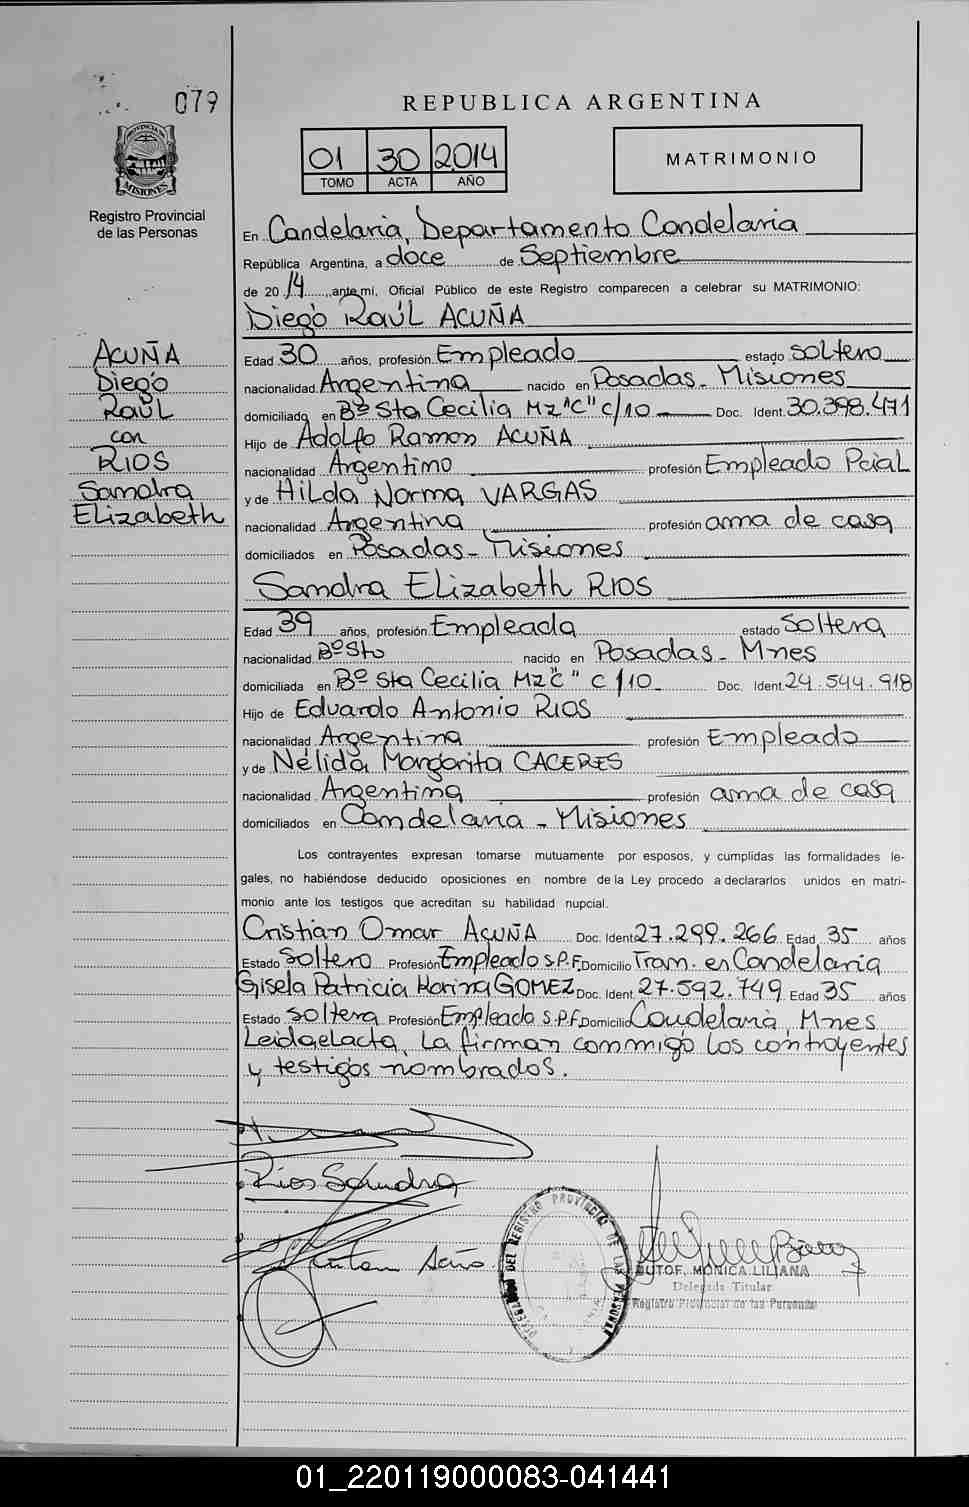 079
PROVINCIA DE
MISIONES
Registro Provincial
de las Personas
REPUBLICA ARGENTINA
01 30 2014
TOMO ACTA AÑO
MATRIMONIO
En Candelaria, Departamento Candelaria
República Argentina, a doce de Septiembre
de 20 14 ante mí, Oficial Público de este Registro comparecen a celebrar su MATRIMONIO:
Diego Raúl ACUÑA
ACUÑA
Diego
Raúl
con
RIOS
Sandra
Elizabeth
Edad 30 años, profesión Empleado estado soltero
nacionalidad Argentina nacido en Posadas - Misiones
domiciliado en Bº Sta Cecilia Mz "C" c/10 Doc. Ident. 30.398.471
Hijo de Adolfo Ramon ACUÑA
nacionalidad Argentino profesión Empleado Pcial
y de Hilda Norma VARGAS
nacionalidad Argentina profesión ama de casa
domiciliados en Posadas - Misiones
Sandra Elizabeth RIOS
Edad 39 años, profesión Empleada estado Soltera
nacionalidad Bº Sto nacido en Posadas - Mnes
domiciliada en Bº Sta Cecilia Mz "C" c/10 Doc. Ident. 24.544.918
Hijo de Eduardo Antonio RIOS
nacionalidad Argentina profesión Empleado
y de Nélida Margarita CACERES
nacionalidad Argentina profesión ama de casa
domiciliados en Candelaria - Misiones
Los contrayentes expresan tomarse mutuamente por esposos, y cumplidas las formalidades le-
gales, no habiéndose deducido oposiciones en nombre de la Ley procedo a declararlos unidos en matri-
monio ante los testigos que acreditan su habilidad nupcial.
Cristian Omar ACUÑA Doc. Ident. 27.299.266 Edad 35 años
Estado Soltero Profesión Empleado S.P.F. Domicilio Tran. en Candelaria
Gisela Patricia Karina GOMEZ Doc. Ident. 27.592.749 Edad 35 años
Estado soltera Profesión Empleada S.P.F. Domicilio Candelaria, Mnes
Leida el acta, la firman conmigo los contrayentes
y testigos nombrados.
Rios Sandra
DEL REGISTRO PROVINCIAL DE LAS PERSONAS
DUTOF. MONICA LILIANA
Delegada Titular
Registro Provincial de las Personas
01_220119000083-041441